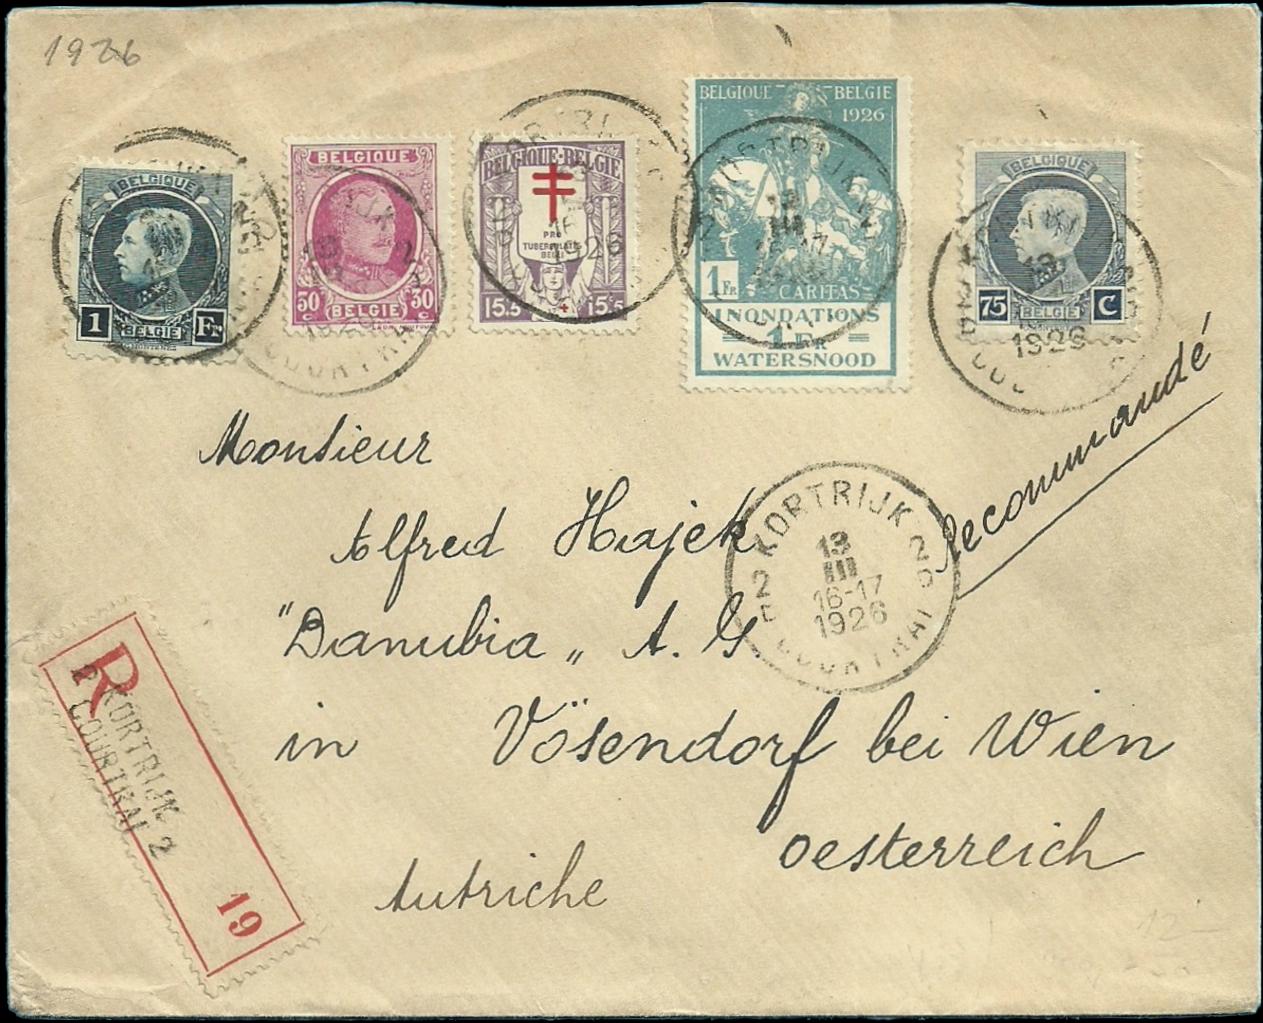 1926
BELGIQUE
1 Fr
BELGIE
BELGIQUE
30 30
c c
BELGIE
BELGIQUE-BELGIE
PRO
TUBERCULATIS
BELGI
15.5 15.5
BELGIQUE BELGIE
1926
1 FR
CARITAS
INONDATIONS
1 FR
WATERSNOOD
BELGIQUE
75 C
BELGIE
Monsieur
Recommandé
Alfred Hajek
"Danubia„ A. G.
in Vösendorf bei Wien
Oesterreich
Autriche
KORTRIJK
2 2
13
III
16-17
1926
COURTRAI
R
KORTRIJK
COURTRAI 2
19